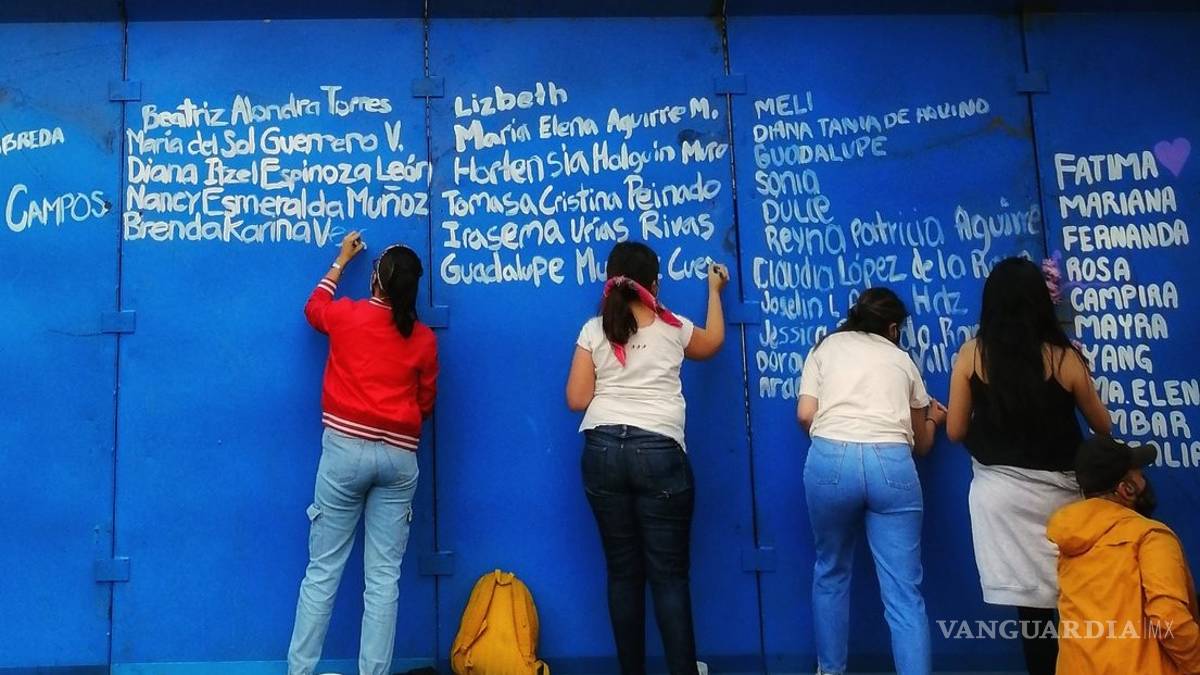 BREDA
CAMPOS
Beatriz Alondra Torres
María del Sol Guerrero V.
Diana Itzel Espinoza León
Nancy Esmeralda Muñoz
Brenda Karina
Lizbeth
María Elena Aguirre M.
Hortensia Holguin
Tomasa Cristina Peinado
Irasema Urías Rivas
Guadalupe
MELI
DIANA TANIA DE AQUINO
GUADALUPE
SONIA
DULCE
Reyna Patricia Aguirre
Claudia López de la
Joselin
Jessica
FATIMA
MARIANA
FERNANDA
ROSA
CAMPIRA
MAYRA
YANG
MA. ELEN
MBAR
VANGUARDIA|MX